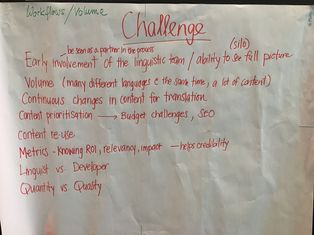 Workflows / Volume
Challenge
be seen as a partner in the process
(silo)
Early involvement of the linguistic team / ability to see full picture
Volume (many different languages @ the same time, a lot of content)
Continuous changes in content for translation
Content prioritisation → Budget challenges, SEO
Content re-use
Metrics - Knowing ROI, relevancy, impact → helps credibility
Linguist vs Developer
Quantity vs Quality